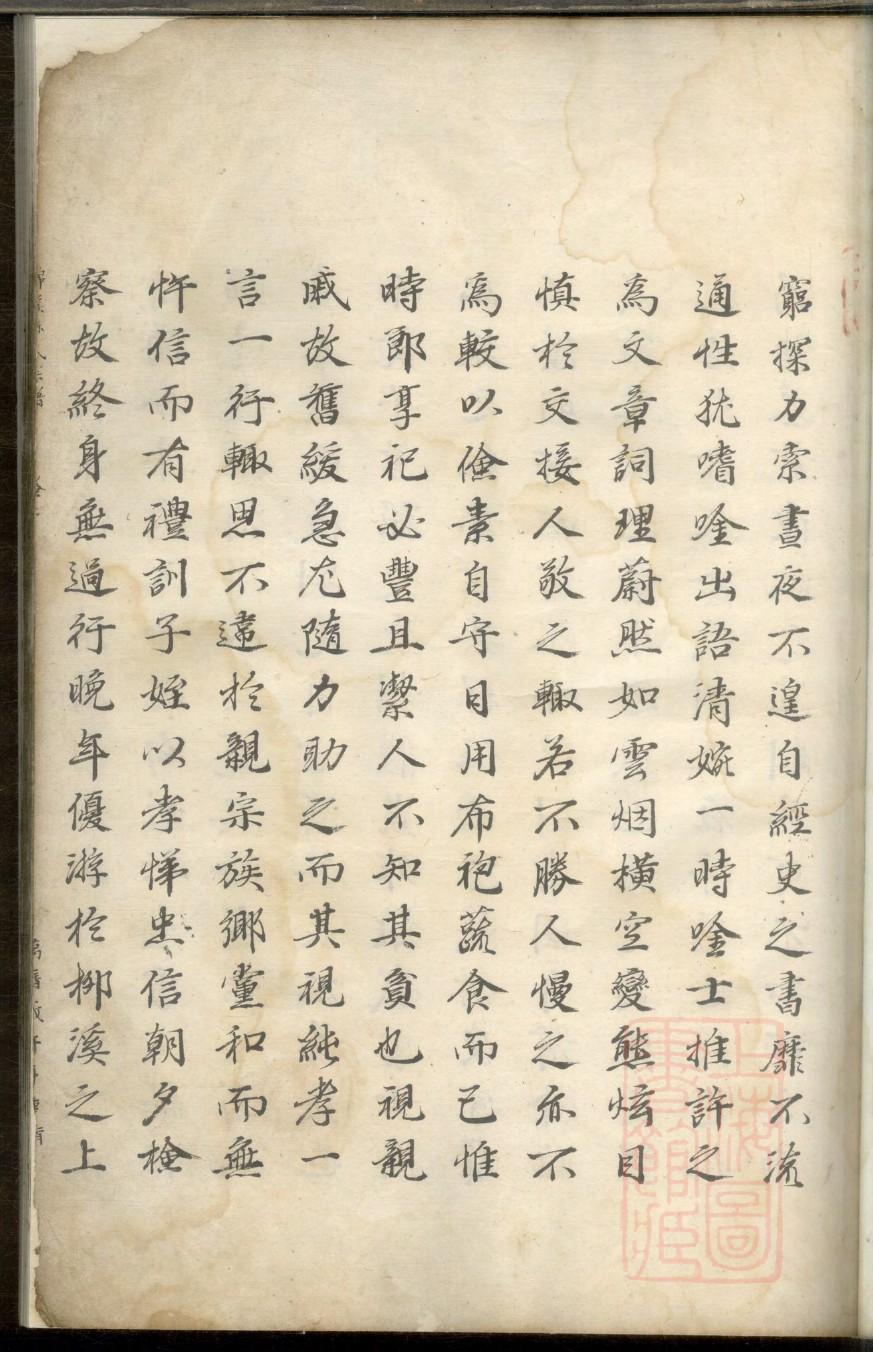 窮探力索晝夜不遑自經史之書靡不流
通性犹嗜唫出語清婉一時唫士推許之
為文章詞理蔚然如雲烟橫空變態炫目
慎於交接人敬之輙若不勝人慢之亦不
為較以儉素自守日用布袍蔬食而已惟
時郎享祀必豐且潔人不知其貧也視親
戚故舊緩急尤隨力助之而其視純孝一
言一行輙思不違於親宗族鄉黨和而無
忤信而有禮訓子姪以孝悌忠信朝夕檢
察故終身無過行晚年優游於柳溪之上